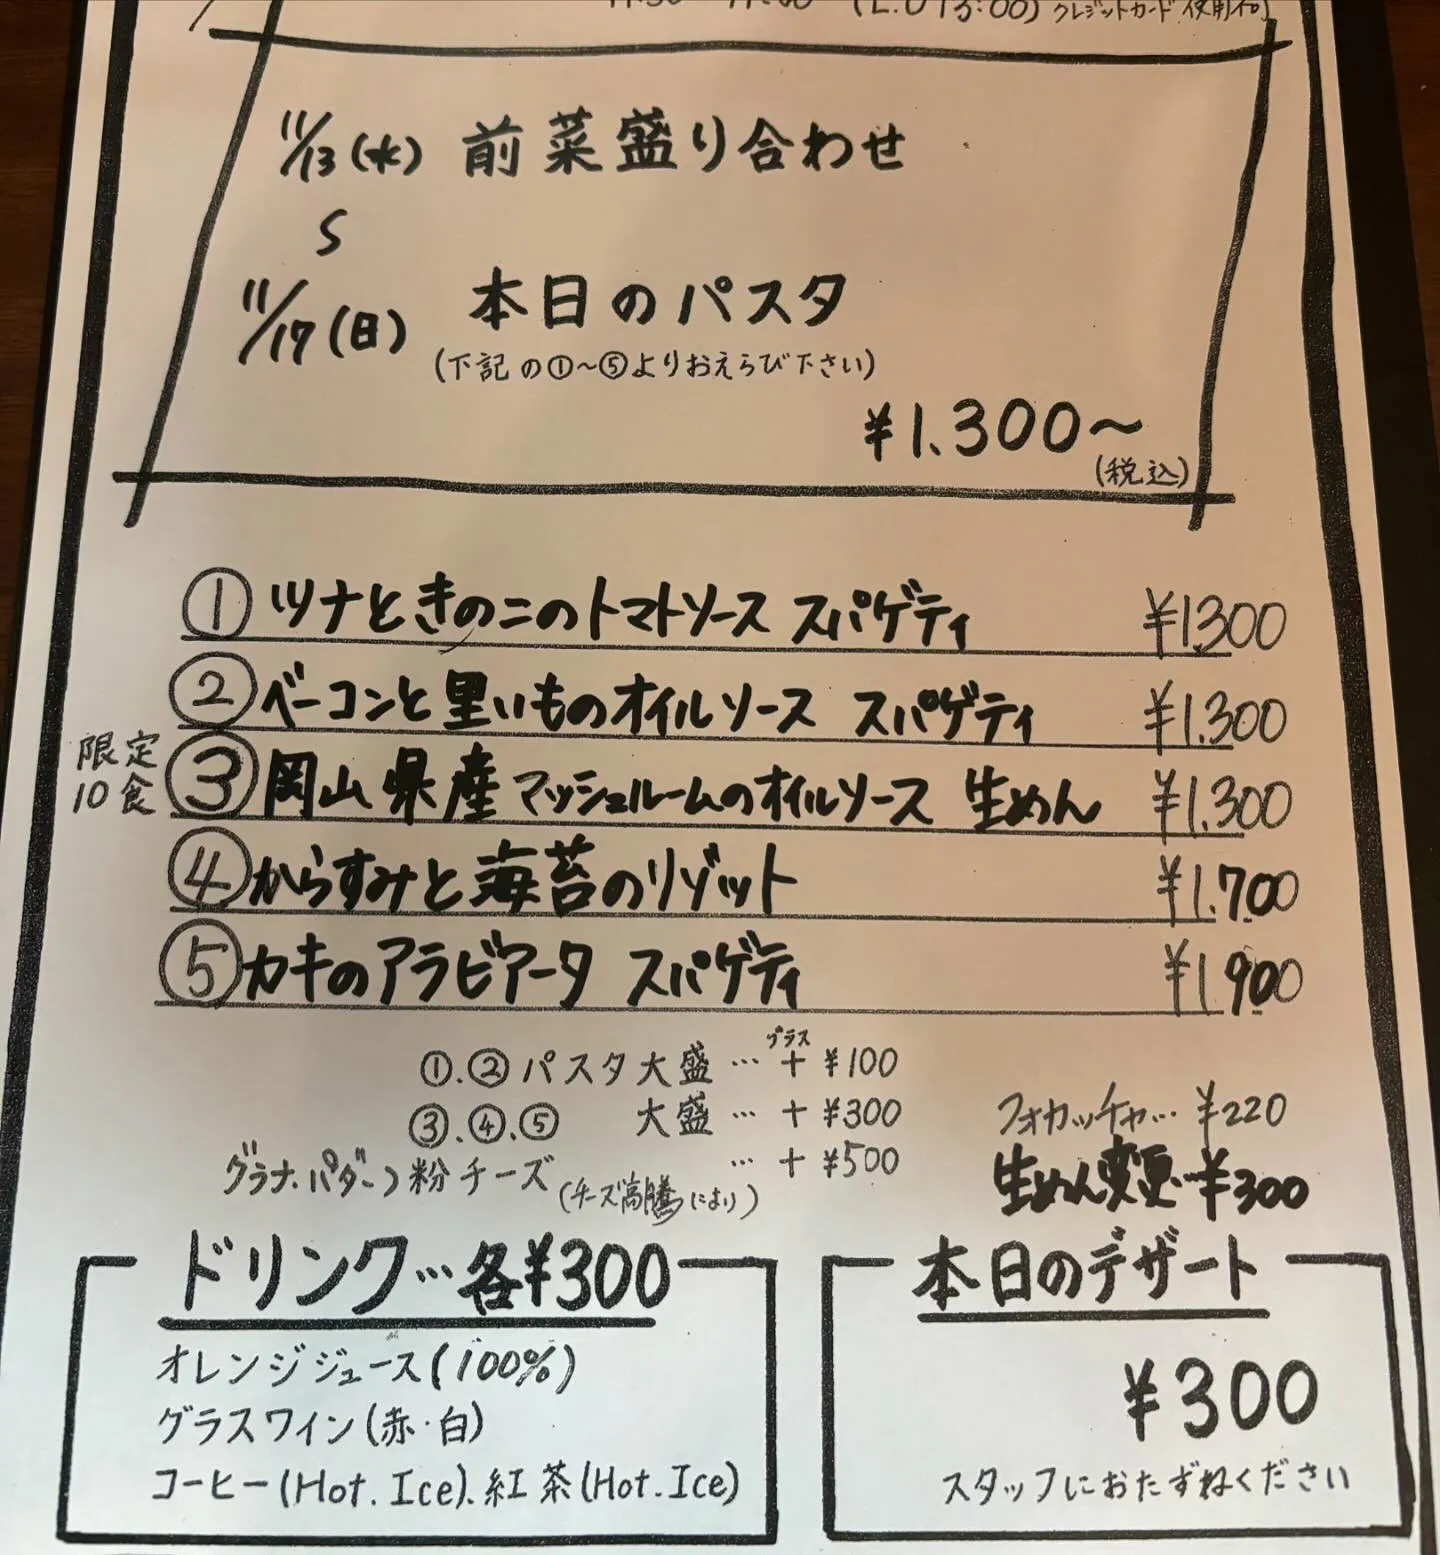 (L.O 13:00) クレジットカード使用不可
11/13(水) 前菜盛り合わせ
S
11/17(日) 本日のパスタ
(下記の①~⑤よりおえらび下さい)
¥1.300~
(税込)
① ツナときのこのトマトソース スパゲティ ¥1300
② ベーコンと里いものオイルソース スパゲティ ¥1.300
限定
10食
③ 岡山県産マッシュルームのオイルソース 生めん ¥1.300
④ からすみと海苔のリゾット ¥1.700
⑤ カキのアラビアータ スパゲティ ¥1.900
プラス
①.② パスタ大盛 … + ¥100
③.④.⑤ 大盛 … + ¥300
フォカッチャ… ¥220
グラナ.パダーノ粉チーズ … + ¥500
(チーズ高騰により)
生めん変更…¥300
ドリンク…各¥300
オレンジジュース(100%)
グラスワイン(赤・白)
コーヒー(Hot.Ice).紅茶(Hot.Ice)
本日のデザート
¥300
スタッフにおたずねください